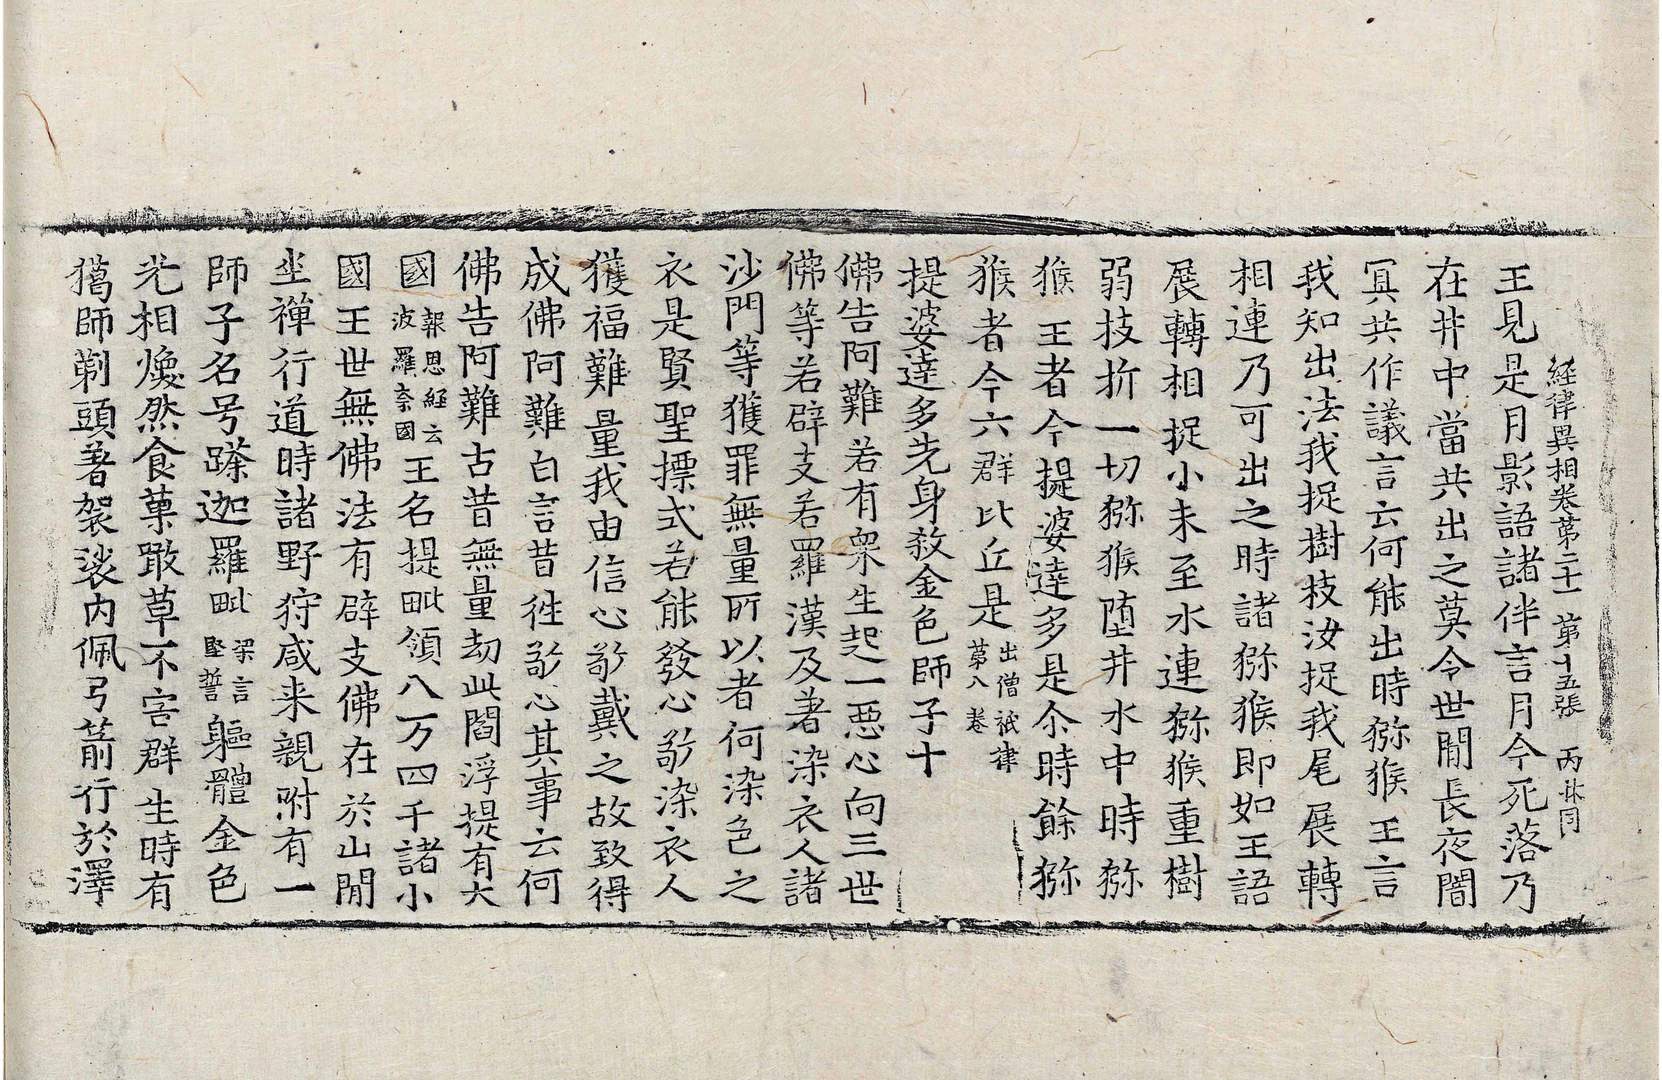 経律異相卷第二十一 第十五張 丙林同
王見是月影語諸伴言月今死落乃
在井中當共出之莫令世閒長夜闇
冥共作議言云何能出時猕猴王言
我知出法我捉樹枝汝捉我尾展轉
相連乃可出之時諸猕猴即如王語
展轉相捉小未至水連猕猴重樹
弱技折一切猕猴堕井水中時猕
猴王者今提婆達多是尒時餘猕
猴者今六群比丘是出僧祇律第八卷
提婆達多先身殺金色師子十
佛告阿難若有衆生起一惡心向三世
佛等若辟支若羅漢及著染衣人諸
沙門等獲罪無量所以者何染色之
衣是賢聖摽式若能發心剃染衣人
獲福難量我由信心敬戴之故致得
成佛阿難白言昔徃敬心其事云何
佛告阿難古昔無量劫此閻浮提有大
國報恩経云波羅柰國王名提毗領八万四千諸小
國王世無佛法有辟支佛在於山閒
坐禪行道時諸野狩咸来親附有一
師子名号蹉迦羅毗梁言堅誓軀體金色
光相煥然食菓噉草不害群生時有
獦師剃頭著袈裟内佩弓箭行於澤